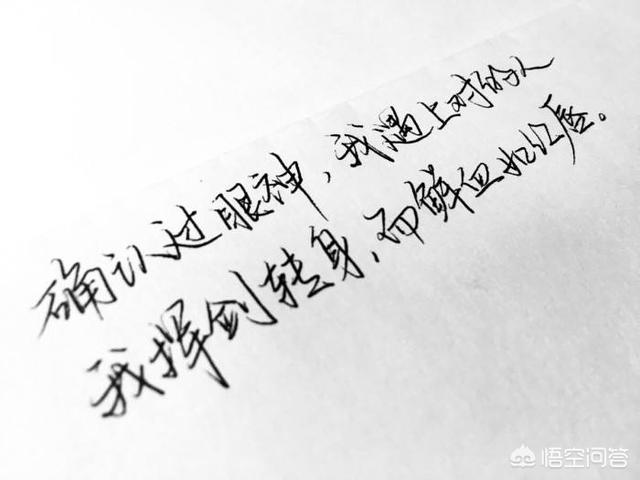 确认过眼神，我遇上对的人
我挥剑转身，而鲜血如红唇。
悟空问答